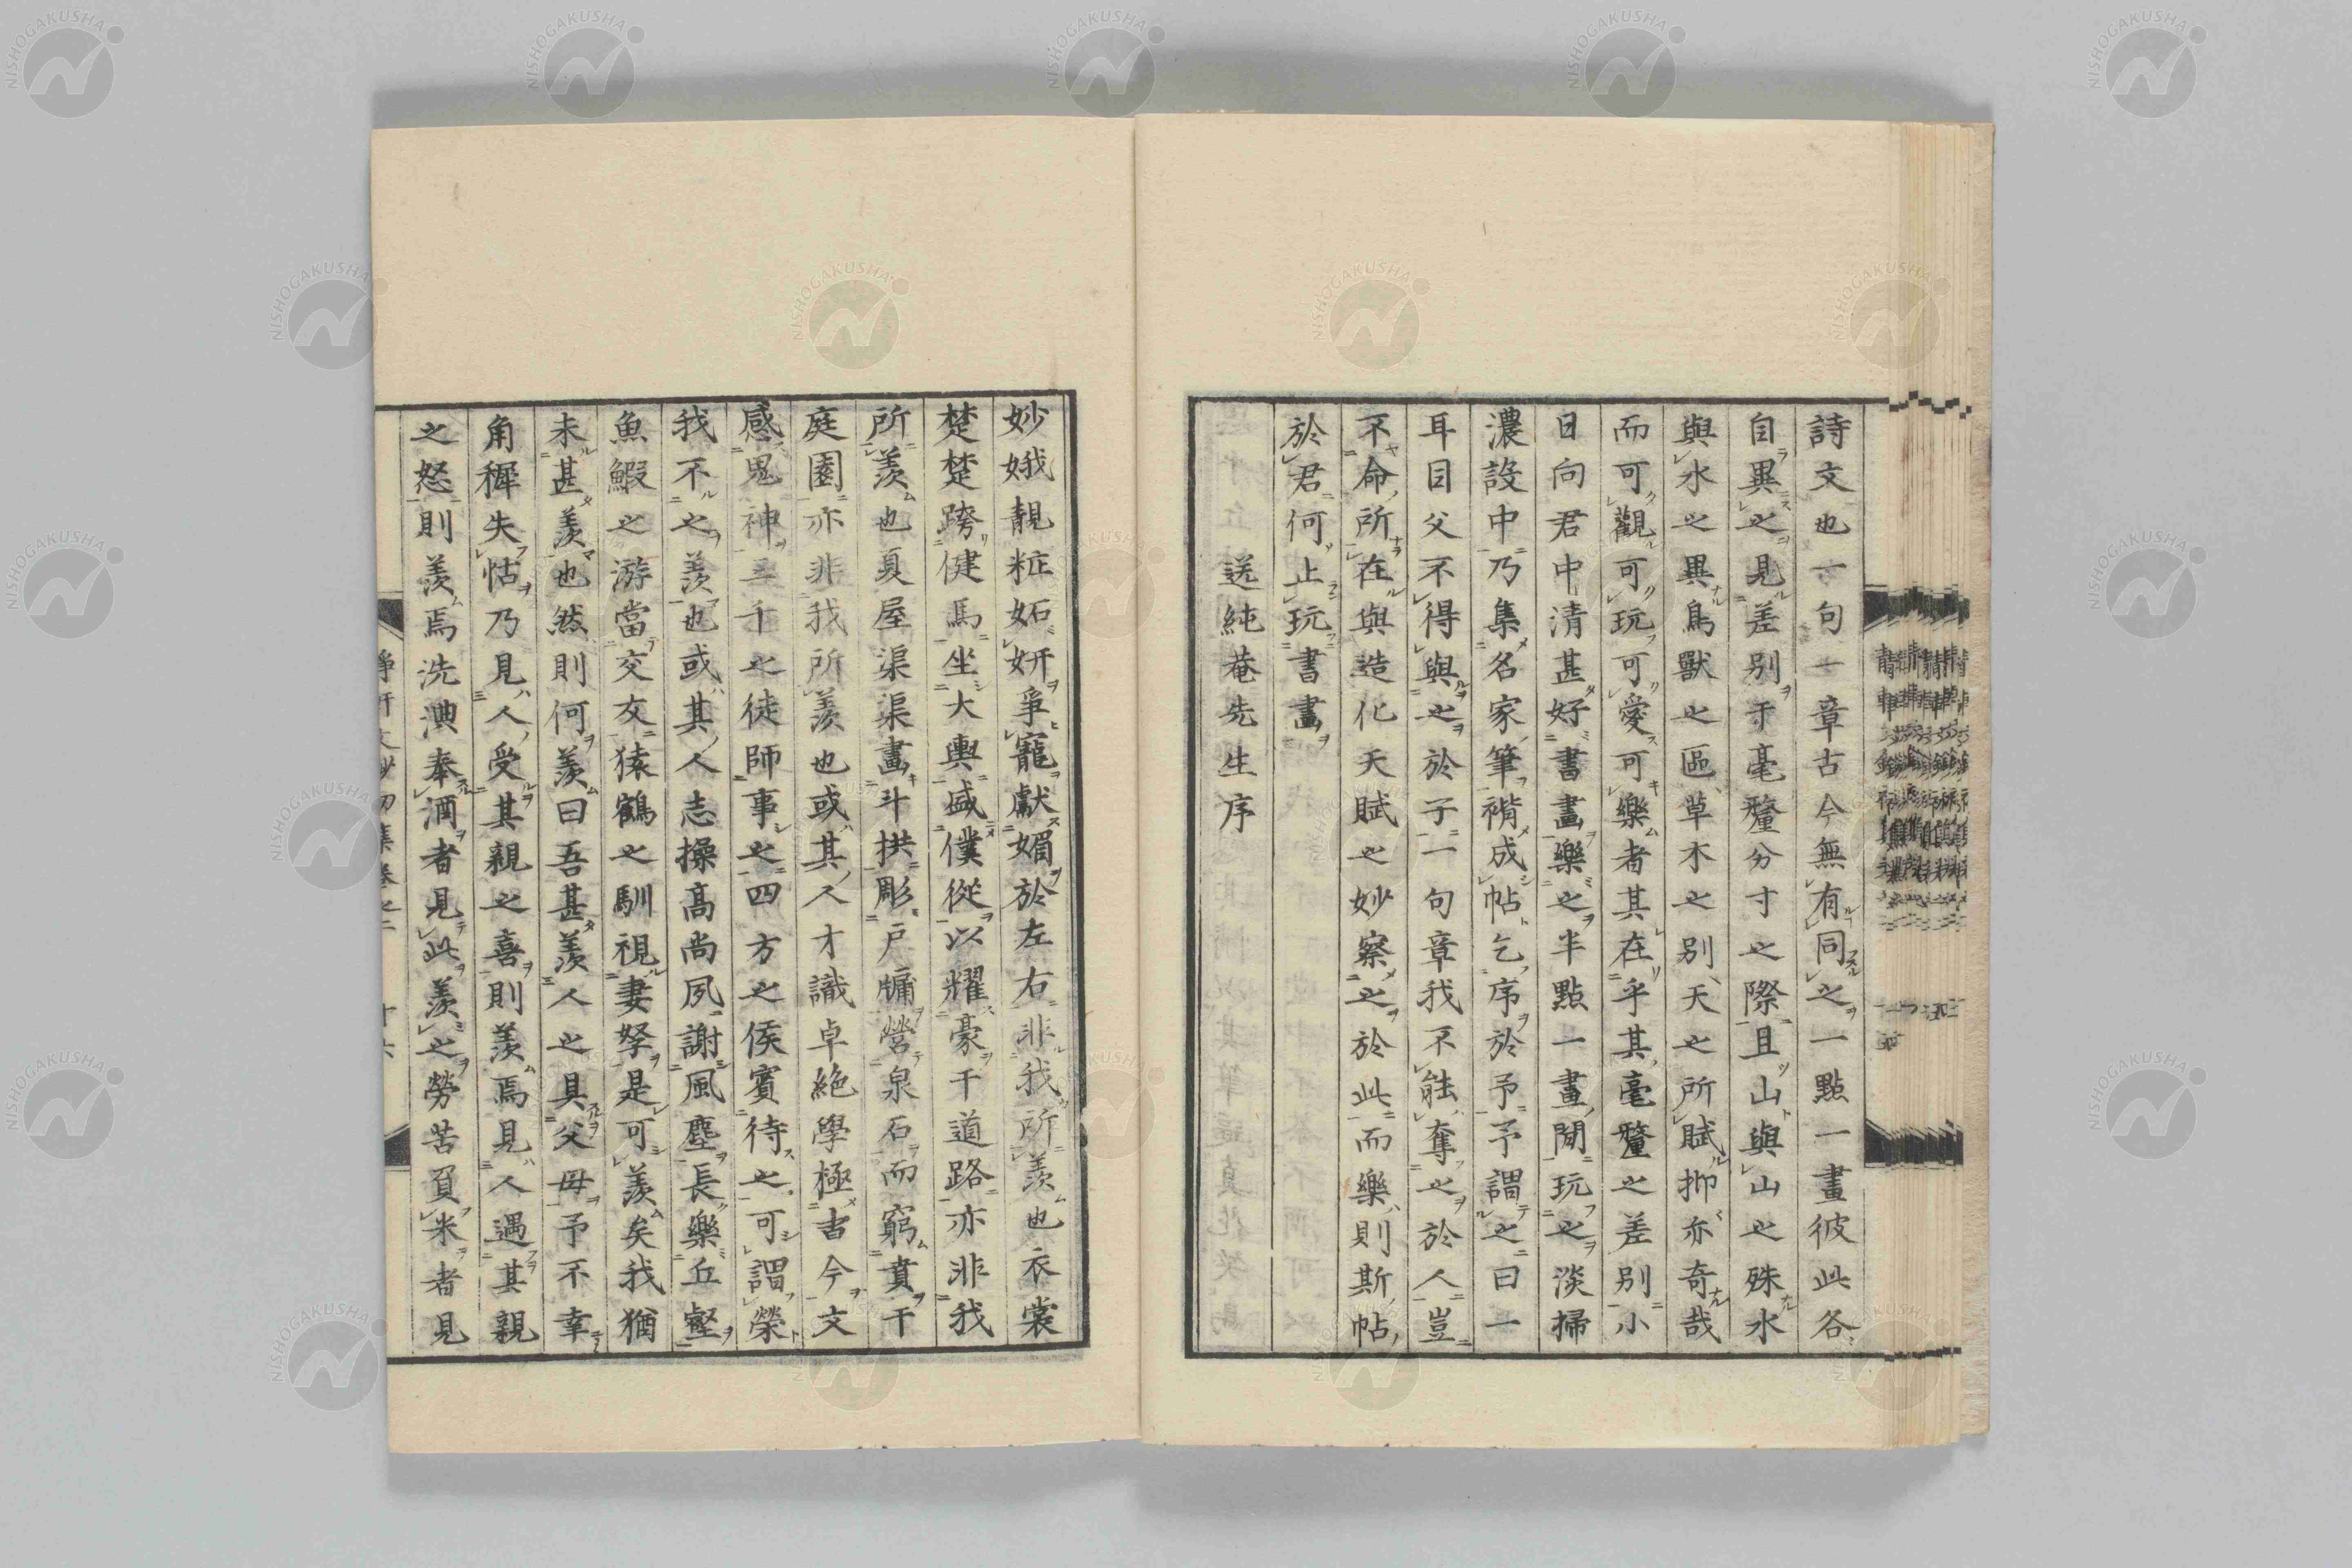 詩文也一句一章古今無有同之一點一畫彼此各
自異之見差別于毫釐分寸之際且山與山之殊水
與水之異鳥獸之區草木之別天之所賦抑亦奇哉
而可觀可玩可愛可樂者其在乎其毫釐之差別小
日向君中清甚好書畫樂之半點一畫閒玩之淡掃
濃設中乃集名家筆褙成帖乞序於予予謂之曰一
耳目父不得與之於子一句章我不能奪之於人豈
不命所在與造化天賦之妙察之於此而樂則斯帖
於君何止玩書畫
送純菴先生序
妙娥靚粧妬妍爭寵獻媚於左右非我所羨也衣裳
楚楚跨健馬坐大輿盛僕從以耀豪于道路亦非我
所羨也夏屋渠渠畫斗拱彫戶牖營泉石而窮賁于
庭園亦非我所羨也或其人才識卓絶學極古今文
感鬼神三千之徒師事之四方之侯賓待之可謂榮
我不之羨也或其人志操高尚夙謝風塵長樂丘壑
魚鰕之游當交友猿鶴之馴視妻孥是可羨矣我猶
未甚羨也然則何羨曰吾甚羨人之具父母予不幸
角稺失怙乃見人受其親之喜則羨焉見人遇其親
之怒則羨焉洗腆奉酒者見此羨之勞苦負米者見
NISHOGAKUSHA